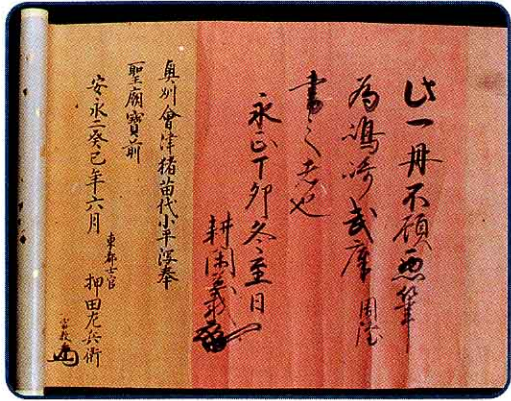 此一冊不顧悪筆
為嶋崎武庫
書之者也
永正丁卯冬至日
耕閑
奥州會津猪苗代小平潟奉
聖廟寶前
安永二癸巳年六月
東都士官 押田左兵衛